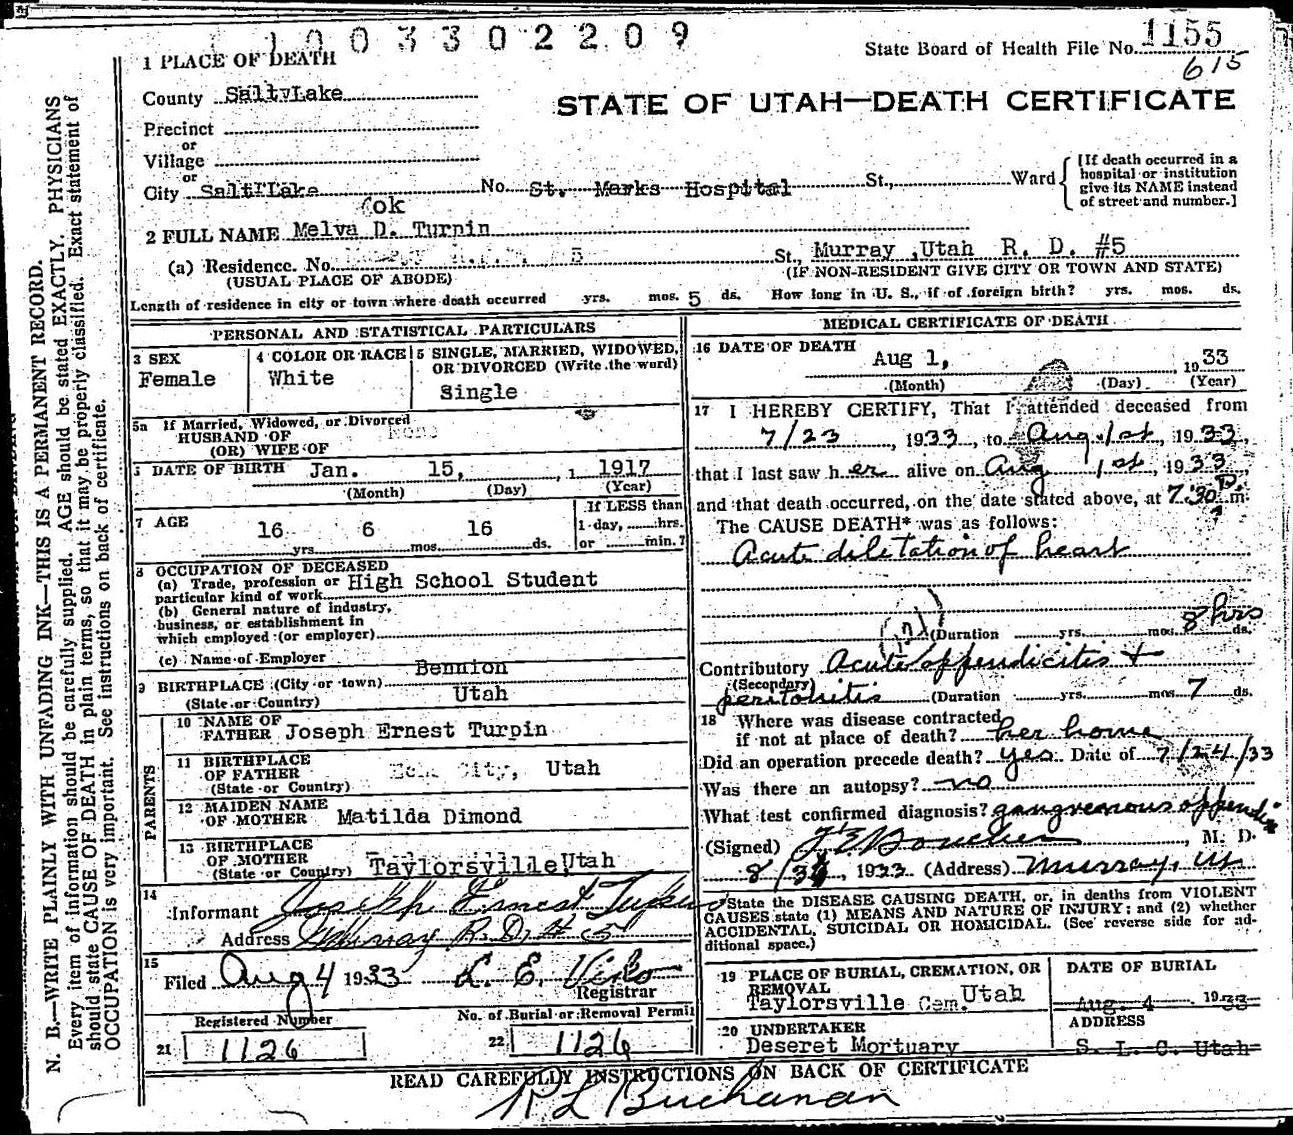 1003302209
State Board of Health File No. 1155
615
1 PLACE OF DEATH
County Salt Lake
STATE OF UTAH—DEATH CERTIFICATE
Precinct
or
Village
or
City Salt Lake No. St. Marks Hospital St., Ward
[If death occurred in a
hospital or institution
give its NAME instead
of street and number.]
ok
2 FULL NAME Melva D. Turpin
(a) Residence. No. 5 St., Murray ,Utah R. D. #5
(USUAL PLACE OF ABODE) (IF NON-RESIDENT GIVE CITY OR TOWN AND STATE)
Length of residence in city or town where death occurred yrs. mos. 5 ds. How long in U. S., if of foreign birth? yrs. mos. ds.
PERSONAL AND STATISTICAL PARTICULARS
3 SEX
Female
4 COLOR OR RACE
White
5 SINGLE, MARRIED, WIDOWED,
OR DIVORCED (Write the word)
Single
5a If Married, Widowed, or Divorced
HUSBAND OF None
(OR) WIFE OF
DATE OF BIRTH Jan. 15, 1917
(Month) (Day) (Year)
7 AGE
16 yrs. 6 mos. 16 ds.
If LESS than
1 day, hrs.
or min.?
8 OCCUPATION OF DECEASED
(a) Trade, profession or
particular kind of work High School Student
(b) General nature of industry,
business, or establishment in
which employed (or employer)
(c) Name of Employer
9 BIRTHPLACE (City or town) Bennion
(State or Country) Utah
PARENTS
10 NAME OF
FATHER Joseph Ernest Turpin
11 BIRTHPLACE
OF FATHER City, Utah
(State or Country)
12 MAIDEN NAME
OF MOTHER Matilda Dimond
13 BIRTHPLACE
OF MOTHER
(State or Country) Taylorsville Utah
14
Informant Joseph Ernest Turpin
Address Murray R. D. # 5
15
Filed Aug 4 1933
Registrar
Registered Number
21 1126
No. of Burial or Removal Permit
22 1126
MEDICAL CERTIFICATE OF DEATH
16 DATE OF DEATH
Aug 1, 1933
(Month) (Day) (Year)
17 I HEREBY CERTIFY, That I attended deceased from
7/23, 1933, to Aug. 1st, 1933,
that I last saw her alive on Aug 1st, 1933,
and that death occurred, on the date stated above, at 7:30 P m.
The CAUSE DEATH* was as follows:
Acute diletation of heart
(121)
(Duration yrs. mos. 8 hrs ds.
Contributory Acute appendicitis +
(Secondary)
peritonitis (Duration yrs. mos. 7 ds.
18 Where was disease contracted
if not at place of death? her home
Did an operation precede death? yes Date of 7/24/33
Was there an autopsy? no
What test confirmed diagnosis? gangrenous appendix
(Signed) M. D.
8/3, 1933 (Address) Murray, Ut
*State the DISEASE CAUSING DEATH, or, in deaths from VIOLENT
CAUSES state (1) MEANS AND NATURE OF INJURY; and (2) whether
ACCIDENTAL, SUICIDAL OR HOMICIDAL. (See reverse side for ad-
ditional space.)
19 PLACE OF BURIAL, CREMATION, OR
REMOVAL
Taylorsville Cem. Utah
DATE OF BURIAL
Aug. 4 1933
20 UNDERTAKER
Deseret Mortuary
ADDRESS
S. L. C. Utah
READ CAREFULLY INSTRUCTIONS ON BACK OF CERTIFICATE
R L Buchanan
N. B.—WRITE PLAINLY WITH UNFADING INK—THIS IS A PERMANENT RECORD.
Every item of information should be carefully supplied. AGE should be stated EXACTLY. PHYSICIANS
should state CAUSE OF DEATH in plain terms, so that it may be properly classified. Exact statement of
OCCUPATION is very important. See instructions on back of certificate.